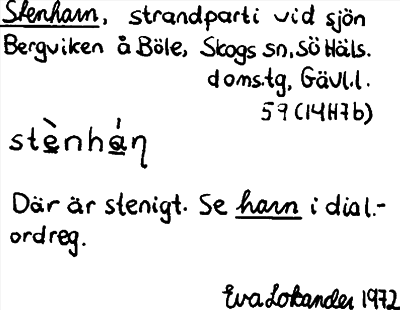 Stenharn, strandparti vid sjön
Bergviken å Böle, Skogs sn, SÖ Häls.
doms.tg, Gävl.l.
59 (14H7b)
stènháṇ
Där är stenigt. Se harn i dial.-
ordreg.
Eva Lokander 1972